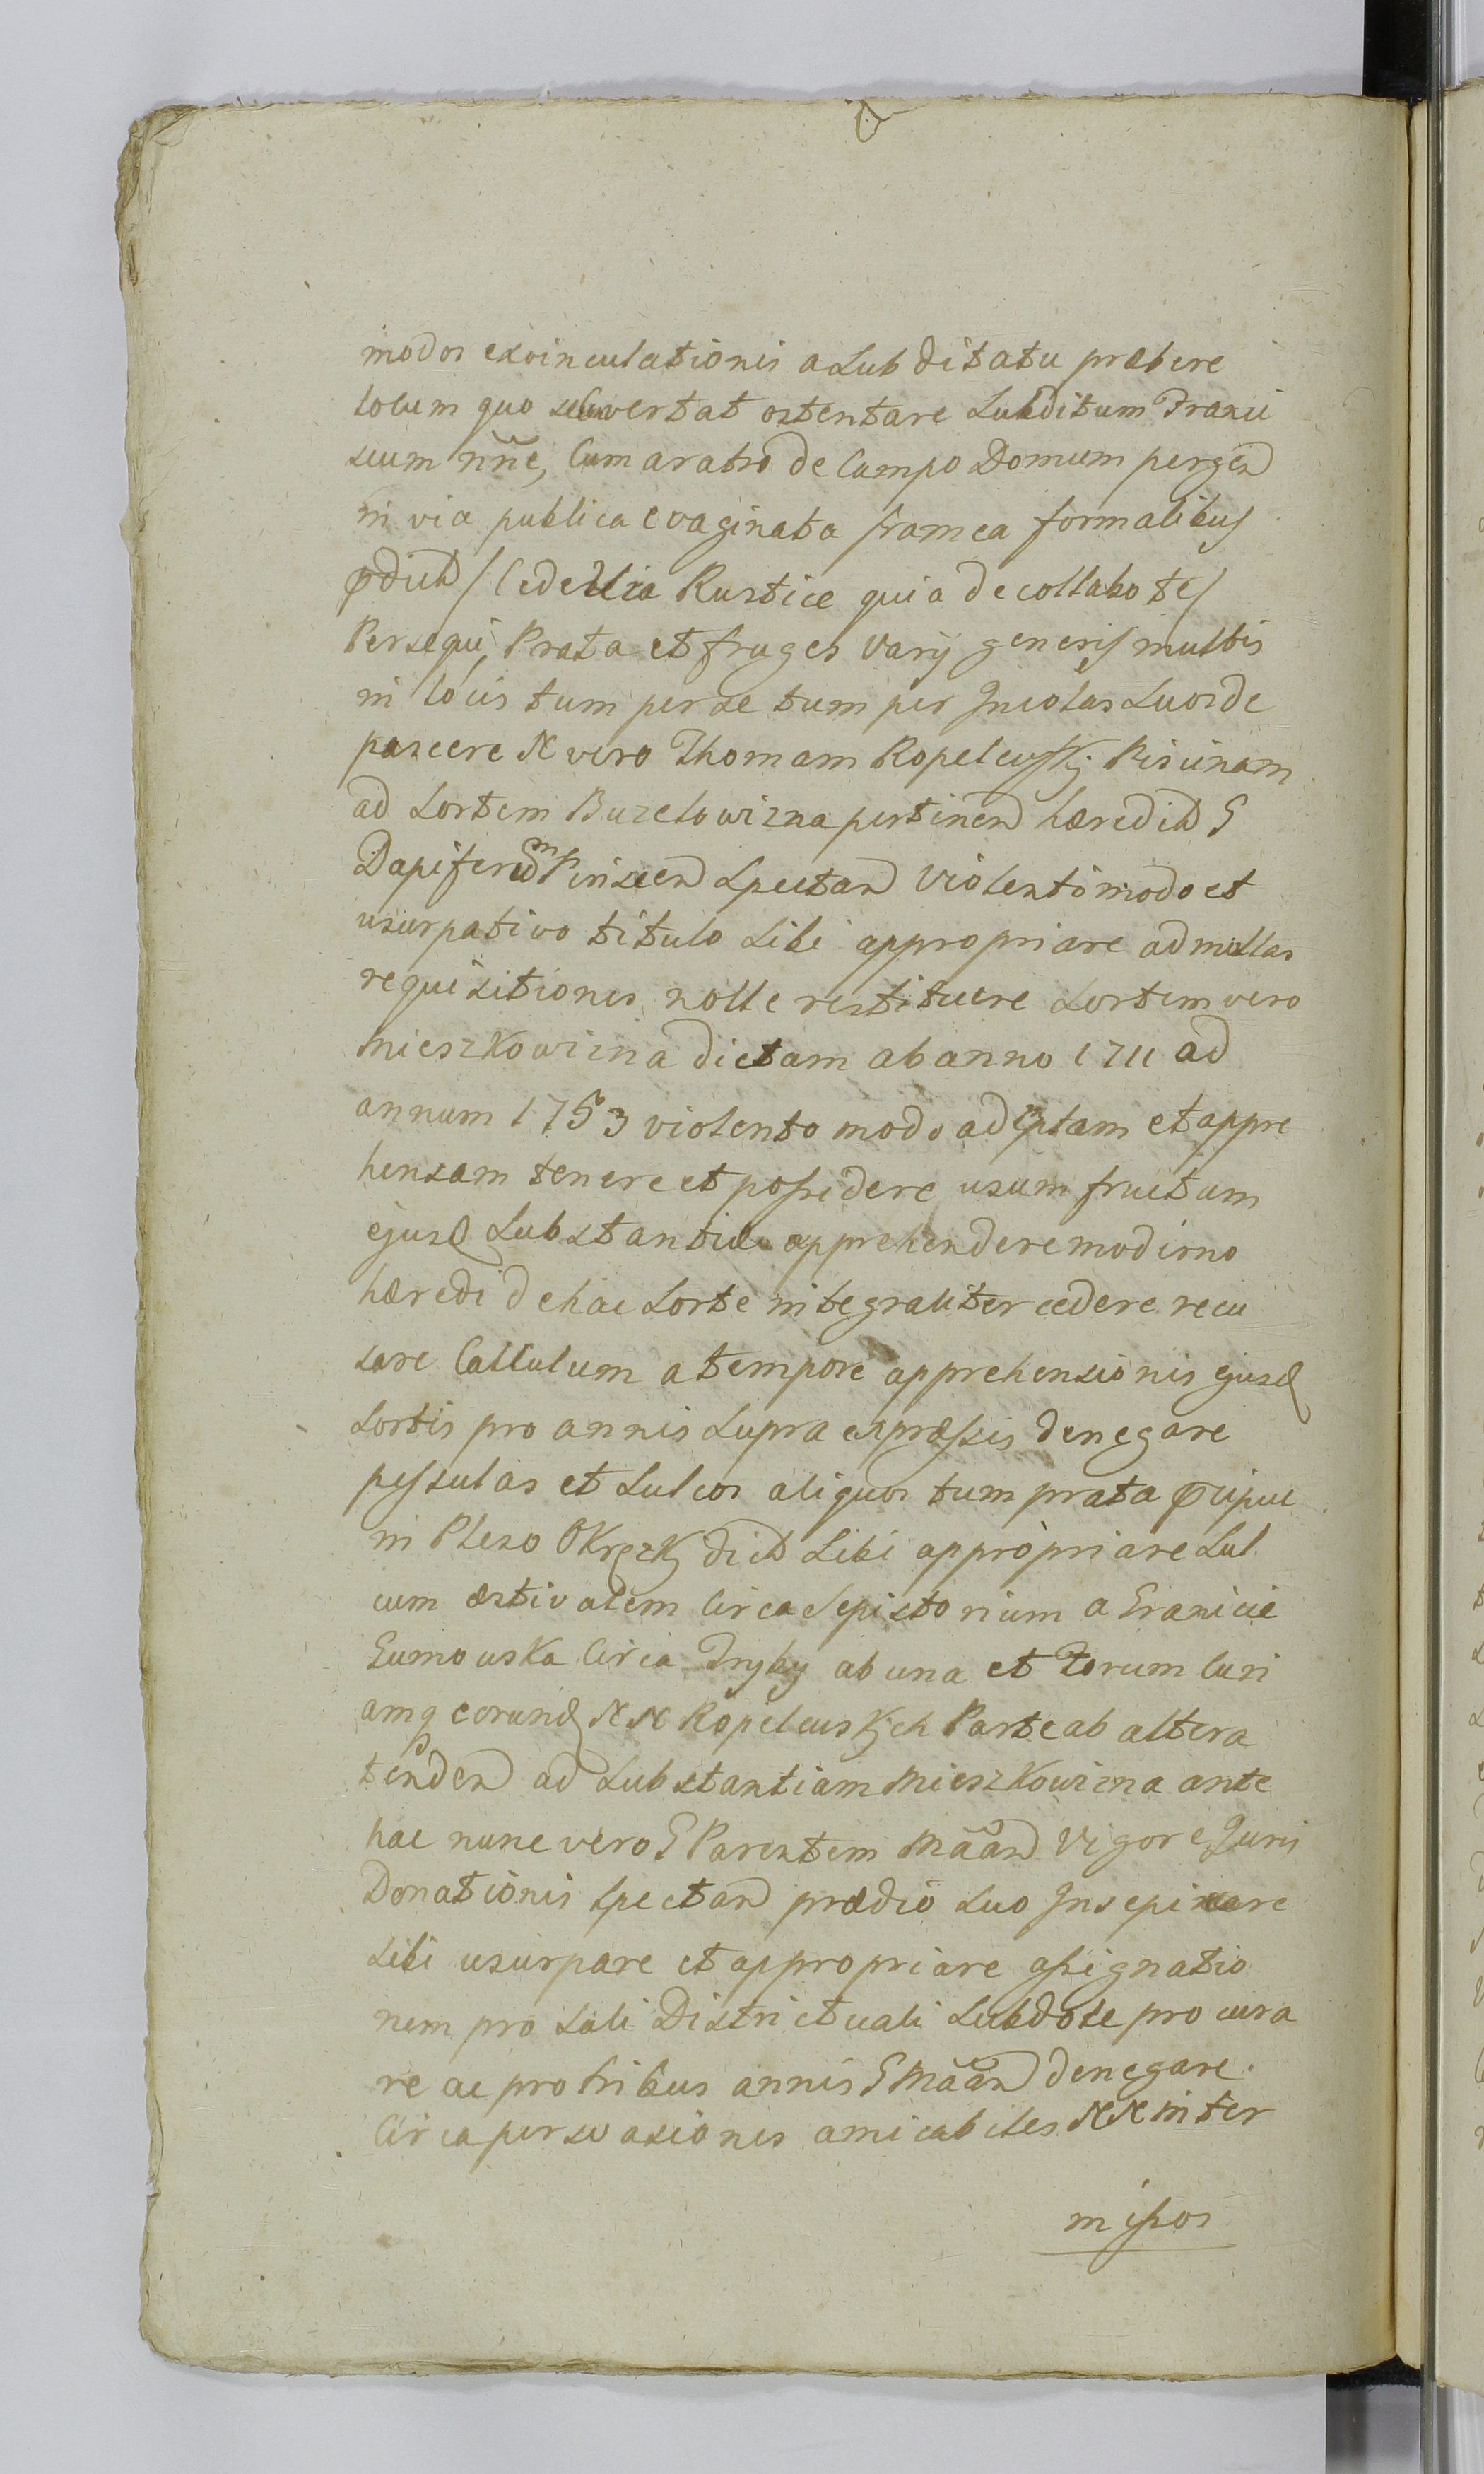 modos exvinculationis a Subditatu præbere
locum quo se vertat ostentare Subditum Franci
scum nn̄e, Cum aratro de Campo Domum pergen
in via publica evaginata framea formalibus
Cede Via Rustice quia decollabo te
Persequi, Prata et fruges varij generis multis
in locis tum per se tum per Incolas Suos de
pascere N vero Thomam Ropelewskj Piscinam
ad Sortem Buzelowizna pertinen hæredit G
Dapiferum Pinscen Spectan Violento modo et
usurpativo titulo Sibi appropriare ad multas
requisitiones nolle restituere Sortem vero
Mieszkowizna dictam ab anno 1711 ad
annum 1753 violento modo adeptam et appre
hensam tenere et possidere usum fructum
ejusd Substantiæ apprehendere moderno
hæredi de hac Sorte integraliter cedere recu
sare Calculum a tempore apprehensionis ejusd
Sortis pro annis Supra expræssis denegare
pessulas et Sulcos aliquos tum prata
in Pleso Okręzkj dict Sibi appropriare Sul
cum æstivalem Circa Sepistorium a Granicie
Gumowska Circa Dryby ab una et Forum Curi
amq eorund NN Ropelewskjch Parte ab altera
tenden ad Substantiam Mieszkowizna ante
hac nunc vero G Parentem Māan Vigore Juris
Donationis spectan prædio Suo Insepimare
Sibi usurpare et appropriare assignatio
nem pro Sali Districtuali Subdole procura
re ac pro tribus annis G Māan denegare.
Circa persvasiones amicabiles NN inter
missos